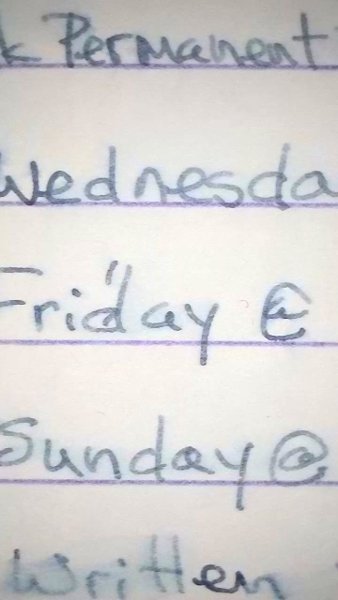 k Permanent
Wednesda
Friday @
Sunday @
Written